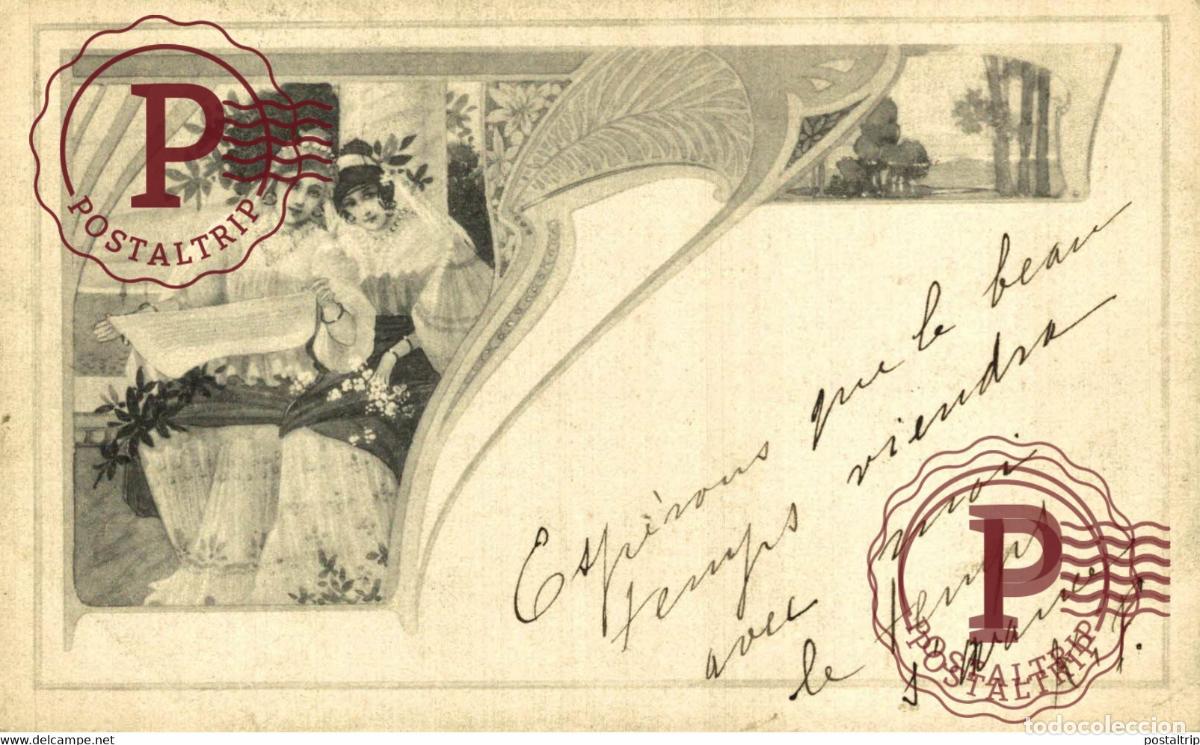 P
POSTALTRIP
Espérons que le beau
temps viendra
avec
le temps
P
POSTALTRIP
POSTALTRIP
todocoleccion
www.delcampe.net
postaltrip